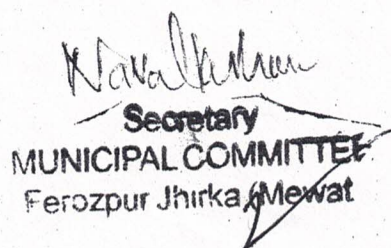 Secretary
MUNICIPAL COMMITTEE
Ferozpur Jhirka (Mewat